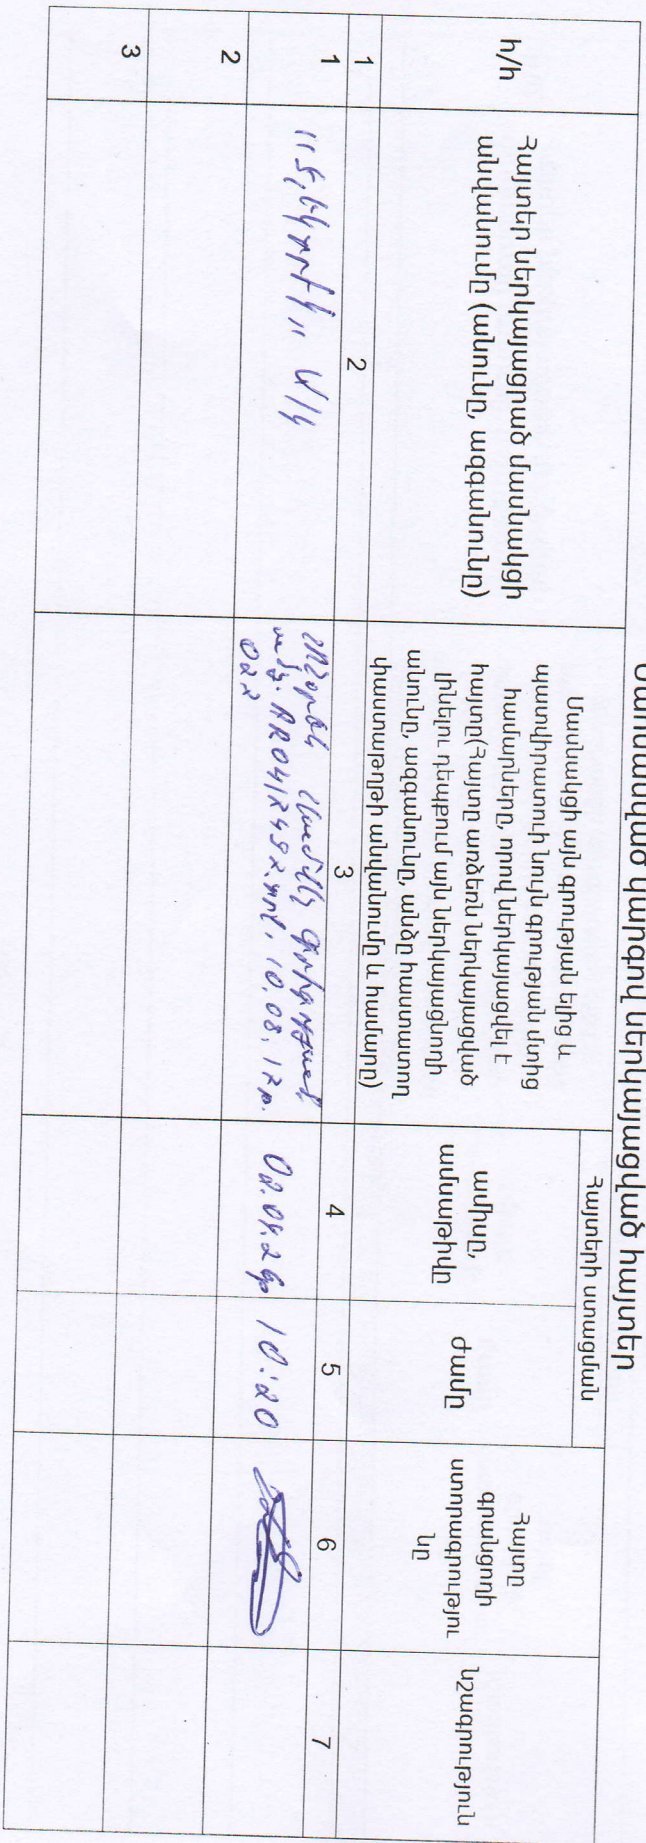 Սահմանված կարգով ներկայացված հայտեր
հ/հ
Հայտեր ներկայացրած մասնակցի
անվանումը (անունը, ազգանունը)
Մասնակցի այն գրության ելից և
պատվիրատուի նույն գրության մտից
համարները, որով ներկայացվել է
հայտը(Հայտը առձեռն ներկայացված
լինելու դեպքում այն ներկայացնողի
անունը, ազգանունը, անձը հաստատող
փաստաթղթի անվանումը և համարը)
Հայտերի ստացման
ամիսը,
ամսաթիվը
ժամը
Հայտը
գրանցողի
ստորագրությու
նը
նշագրություն
1
2
3
4
5
6
7
1
Ա/Կ
10.08.12թ.
022
10:20
2
3